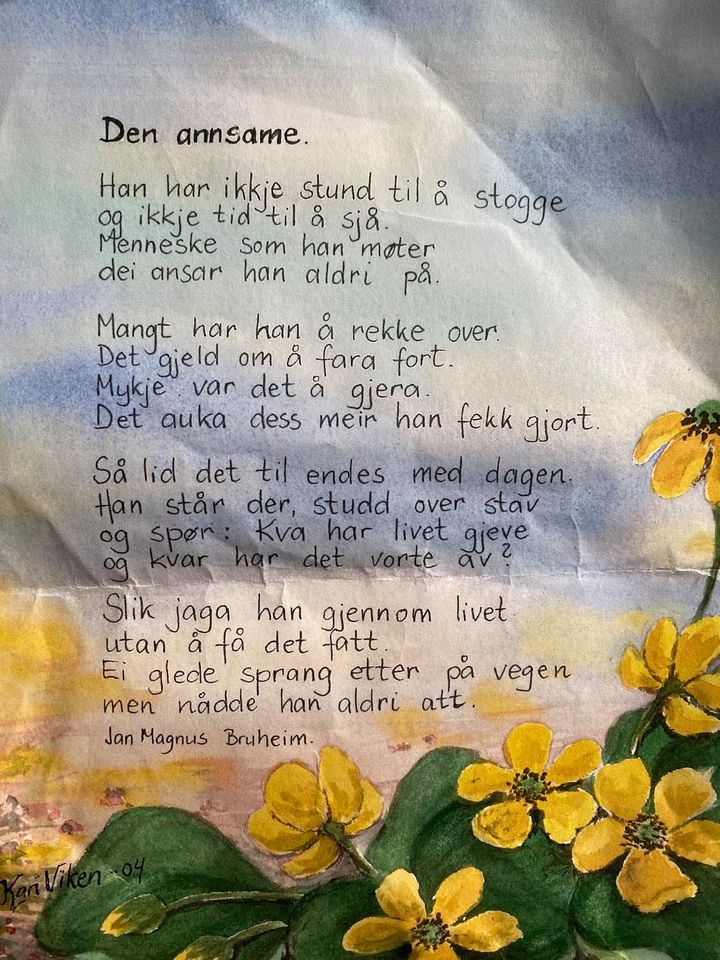 Den annsame.
Han har ikkje stund til å stogge
og ikkje tid til å sjå.
Menneske som han møter
dei ansar han aldri på.
Mangt har han å rekke over.
Det gjeld om å fara fort.
Mykje var det å gjera.
Det auka dess meir han fekk gjort.
Så lid det til endes med dagen.
Han står der, studd over stav
og spør: Kva har livet gjeve
og kvar har det vorte av?
Slik jaga han gjennom livet
utan å få det fatt.
Ei glede sprang etter på vegen
men nådde han aldri att.
Jan Magnus Bruheim.
Kari Viken -04